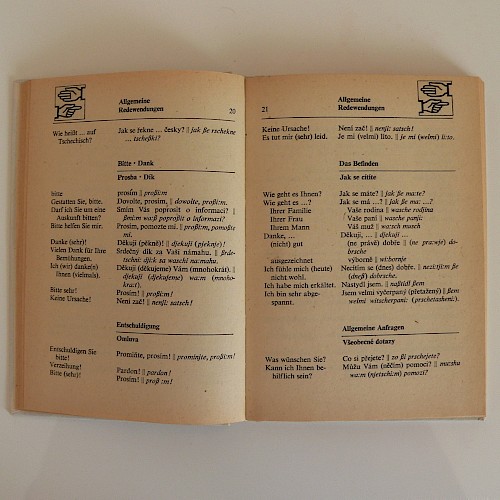 Allgemeine
Redewendungen 20
Wie heißt ... auf Jak se řekne ... česky? || jak ße rschekne
Tschechisch? ... tscheßki?
Bitte · Dank
Prosba · Dík
bitte prosím || proßi:m
Gestatten Sie, bitte. Dovolte, prosím, || dowolte, proßi:m.
Darf ich Sie um eine Smím Vás poprosit o informaci? ||
Auskunft bitten? ßmi:m wa:ß poproßit o informazi?
Bitte helfen Sie mir. Prosím, pomozte mi. || proßi:m, pomoßte
mi.
Danke (sehr)! Děkuji (pěkně)! || djekuji (pjeknje)!
Vielen Dank für Ihre Srdečný dík za Vaši námahu. || ßrde-
Bemühungen. tschni: dji:k sa waschi na:mahu.
Ich (wir) danke(n) Děkuji (děkujeme) Vám (mnohokrát). ||
Ihnen (vielmals). djekuji (djekujeme) wa:m (mnoho-
kra:t).
Bitte sehr! Prosím! || proßi:m!
Keine Ursache! Není zač! || nenji: satsch!
Entschuldigung
Omluva
Entschuldigen Sie Promiňte, prosím! || prominjte, proßi:m!
bitte!
Verzeihung! Pardon! || pardon!
Bitte (sehr)! Prosím! || proßi:m!
21 Allgemeine
Redewendungen
Keine Ursache! Není zač! || nenji: satsch!
Es tut mir (sehr) leid. Je mi (velmi) líto. || je mi (welmi) li:to.
Das Befinden
Jak se cítíte
Wie geht es Ihnen? Jak se máte? || jak ße ma:te?
Wie geht es ...? Jak se má ...? || jak ße ma: ...?
Ihrer Familie Vaše rodina || wasche rodjina
Ihrer Frau Vaše paní || wasche panji:
Ihrem Mann Váš muž || wa:sch musch
Danke, ... Děkuji, ... || djekuji ...
(nicht) gut (ne právě) dobře || (ne pra:wje) do-
brsche
ausgezeichnet výborně || wi:bornje
Ich fühle mich (heute) Necítím se (dnes) dobře. || nezi:tji:m ße
nicht wohl. (dneß) dobrsche.
Ich habe mich erkältet. Nastydl jsem. || naßtidl ßem
Ich bin sehr abge- Jsem velmi vyčerpaný (přetažený) || ßem
spannt. welmi witscherpani: (prschetascheni:).
Allgemeine Anfragen
Všeobecné dotazy
Was wünschen Sie? Co si přejete? || zo ßi prschejete?
Kann ich Ihnen be- Můžu Vám (něčím) pomoci? || mu:shu
hilflich sein? wa:m (njetschi:m) pomozi?